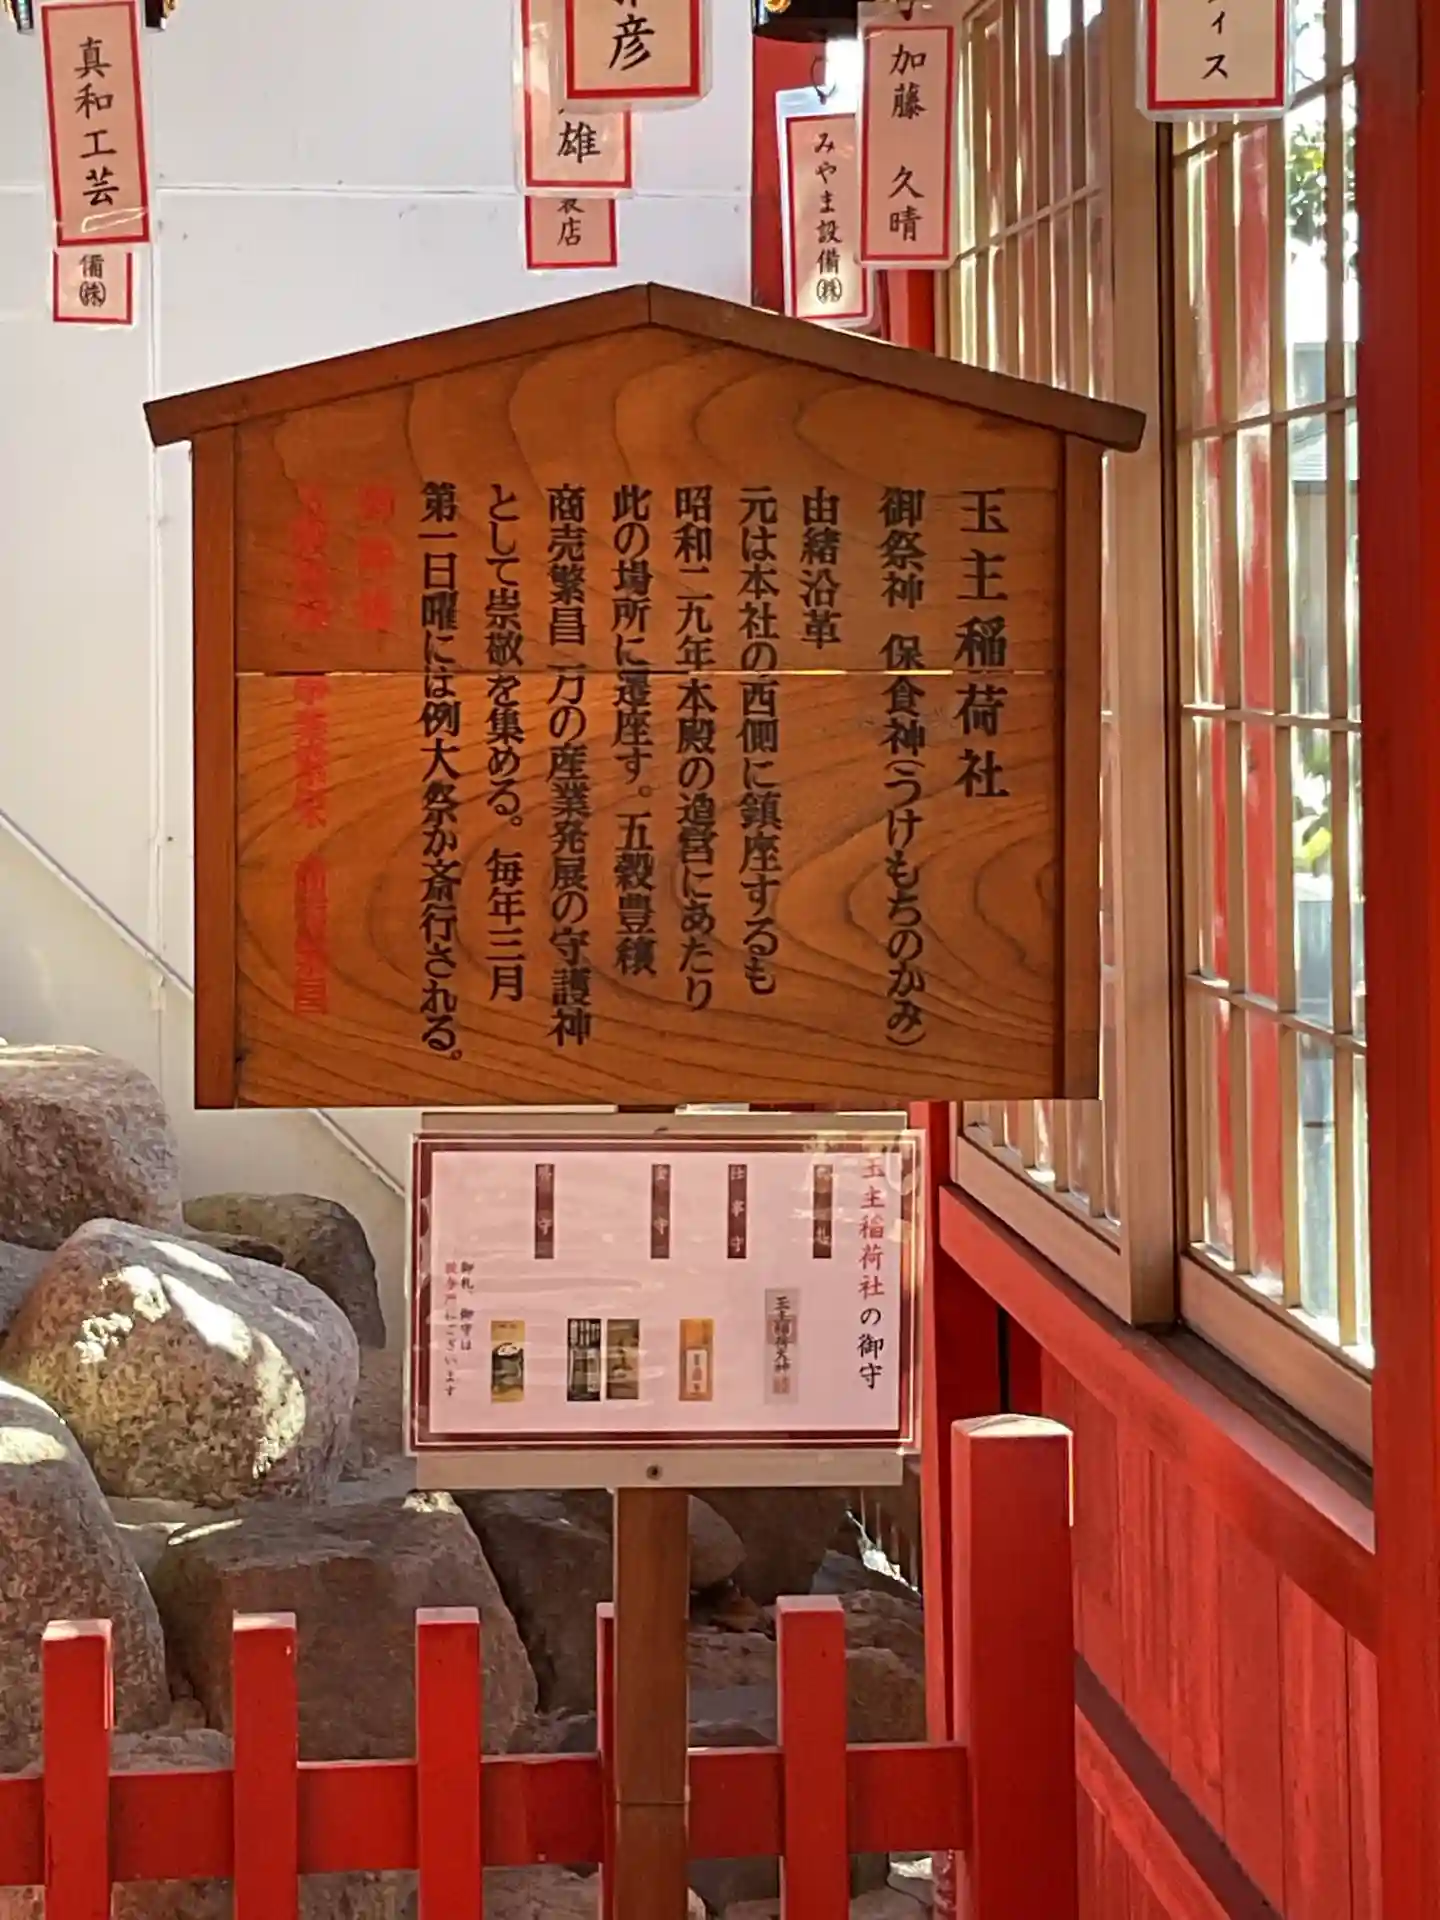 真和工芸
備㈱
彦
雄
店
みやま設備㈱
加藤 久晴
ィス
玉主稲荷社
御祭神 保食神(うけもちのかみ)
由緒沿革
元は本社の西側に鎮座するも
昭和二九年本殿の造営にあたり
此の場所に遷座す。五穀豊穣
商売繁昌 万の産業発展の守護神
として崇敬を集める。毎年三月
第一日曜には例大祭が斎行される。
玉主稲荷社の御守
仕事守
守
守
御札、御守は
授与所にございます